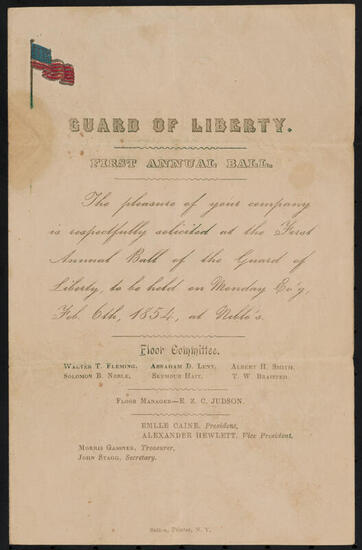 GUARD OF LIBERTY.
FIRST ANNUAL BALL.
The pleasure of your company
is respectfully solicited at the First
Annual Ball of the Guard of
Liberty, to be held on Monday Ev'g,
Feb. 6th, 1854, at Niblo's.
Floor Committee.
WALTER T. FLEMING, ABRAHAM D. LENT, ALBERT H. SMITH,
SOLOMON B. NOBLE, SEYMOUR HAIT, T. W. BRAISTED.
FLOOR MANAGER—E. Z. C. JUDSON.
EMLLE CAINE, President,
ALEXANDER HEWLETT, Vice President,
MORRIS GASSNER, Treasurer,
JOHN STAGG, Secretary.
Printer, N. Y.